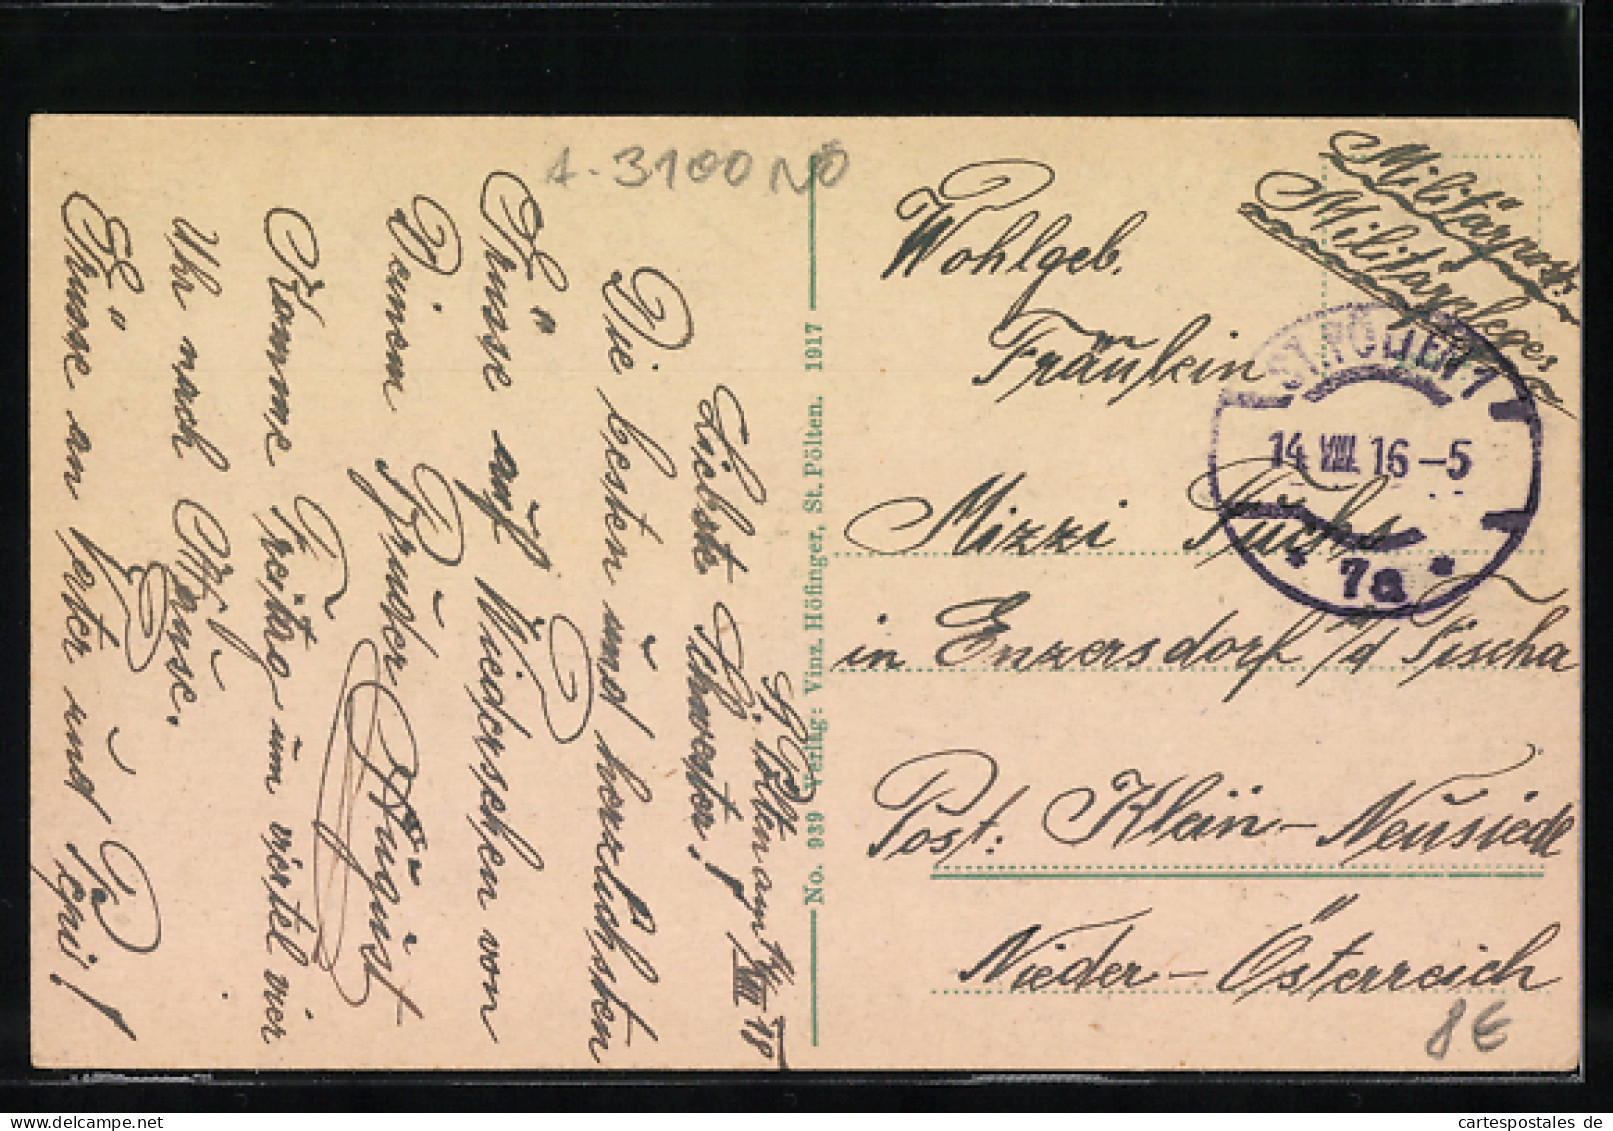 A-3100 NÖ
St. Pölten am 14/VIII 18
Liebste Schwester!
Die besten und herzlichsten
Grüsse auf Wiedersehen von
Deinem Bruder August
Komme Freitag um viertel vier
Uhr nach Hause.
Grüsse an Vater und Pepi!
No. 939 Verlag: Vinz. Höfinger, St. Pölten. 1917
Militärpost.
Militärpflege
Wohlgeb.
Fräulein
Mizzi Fuchs
in Enzersdorf a/d Fischa
Post: Klein-Neusiedl
Nieder-Österreich
ST. PÖLTEN 1
14 VIII. 16-5
* 7a *
8€
cartespostales de